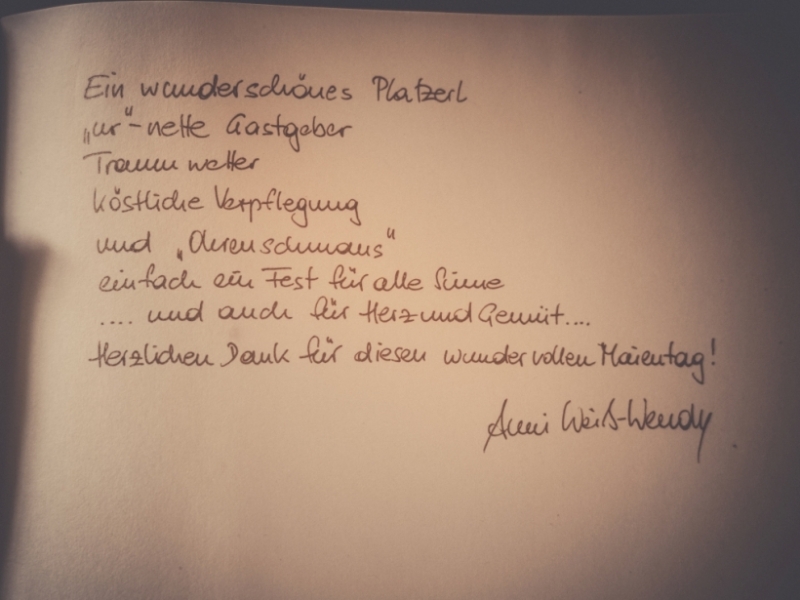 Ein wunderschönes Platzerl
„ur“-nette Gastgeber
Traumwetter
köstliche Verpflegung
und „Ohrenschmaus“
einfach ein Fest für alle Sinne
.... und auch für Herz und Gemüt....
Herzlichen Dank für diesen wundervollen Maientag!
Anni Weiß-Wendy